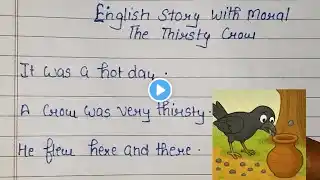 English Story With Moral
The Thirsty Crow
It was a hot day.
A Crow was very thirsty.
He flew here and there.